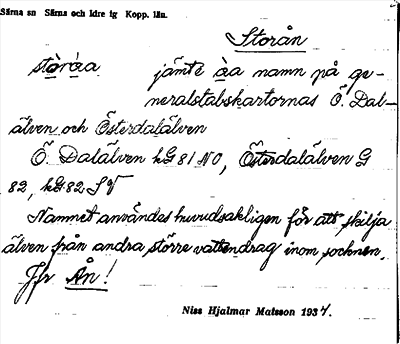 Särna sn Särna och Idre tg Kopp. län.
Storån
stòráa jämte àa namn på ge-
neralstabskartornas Ö. Dal-
älven och Österdalälven
Ö. Dalälven hG 81 NO, Österdalälven G
82, hG 82 SV
Namnet användes huvudsakligen för att skilja
älven från andra större vattendrag inom socknen.
Jfr Ån!
Niss Hjalmar Matsson 1934.